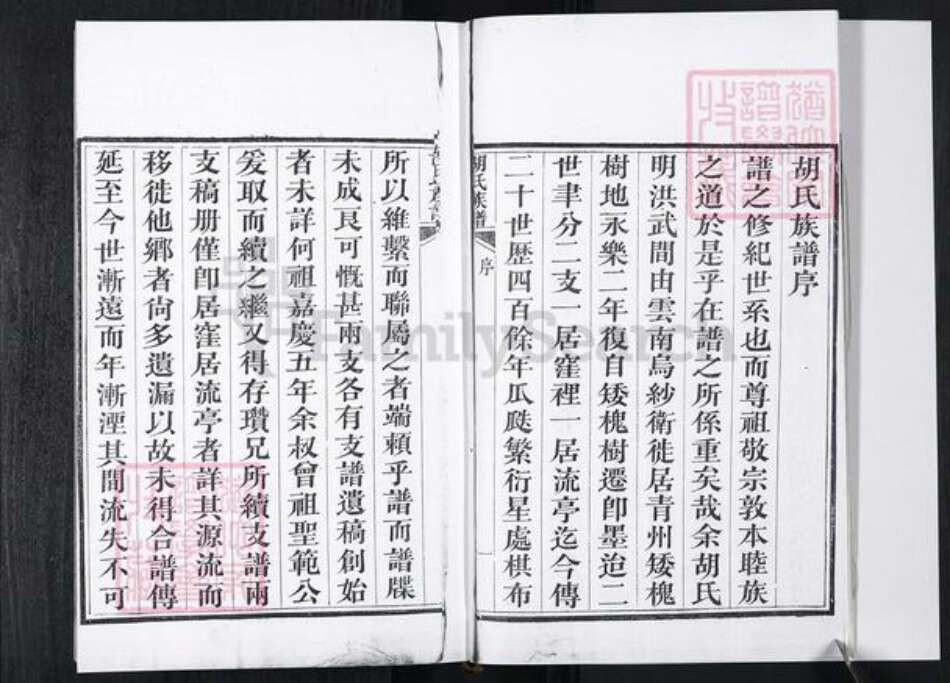 胡氏族譜序
譜之修紀世系也而尊祖敬宗敦本睦族
之道於是乎在譜之所係重矣哉余胡氏
明洪武間由雲南烏紗衛徙居青州矮槐
樹地永樂二年復自矮槐樹遷卽墨迨二
世聿分二支一居窪裡一居流亭迄今傳
二十世歴四百餘年瓜瓞繁衍星處棋布
胡氏族譜
序
一
所以維繫而聯屬之者端頼乎譜而譜牒
未成良可慨甚兩支各有支譜遺稿創始
者未詳何祖嘉慶五年余叔曾祖聖範公
爰取而續之繼又得存瓚兄所續支譜兩
支稿册僅卽居窪居流亭者詳其源流而
移徙他鄉者尙多遺漏以故未得合譜傳
延至今世漸遠而年漸湮其間流失不可
FamilySearch